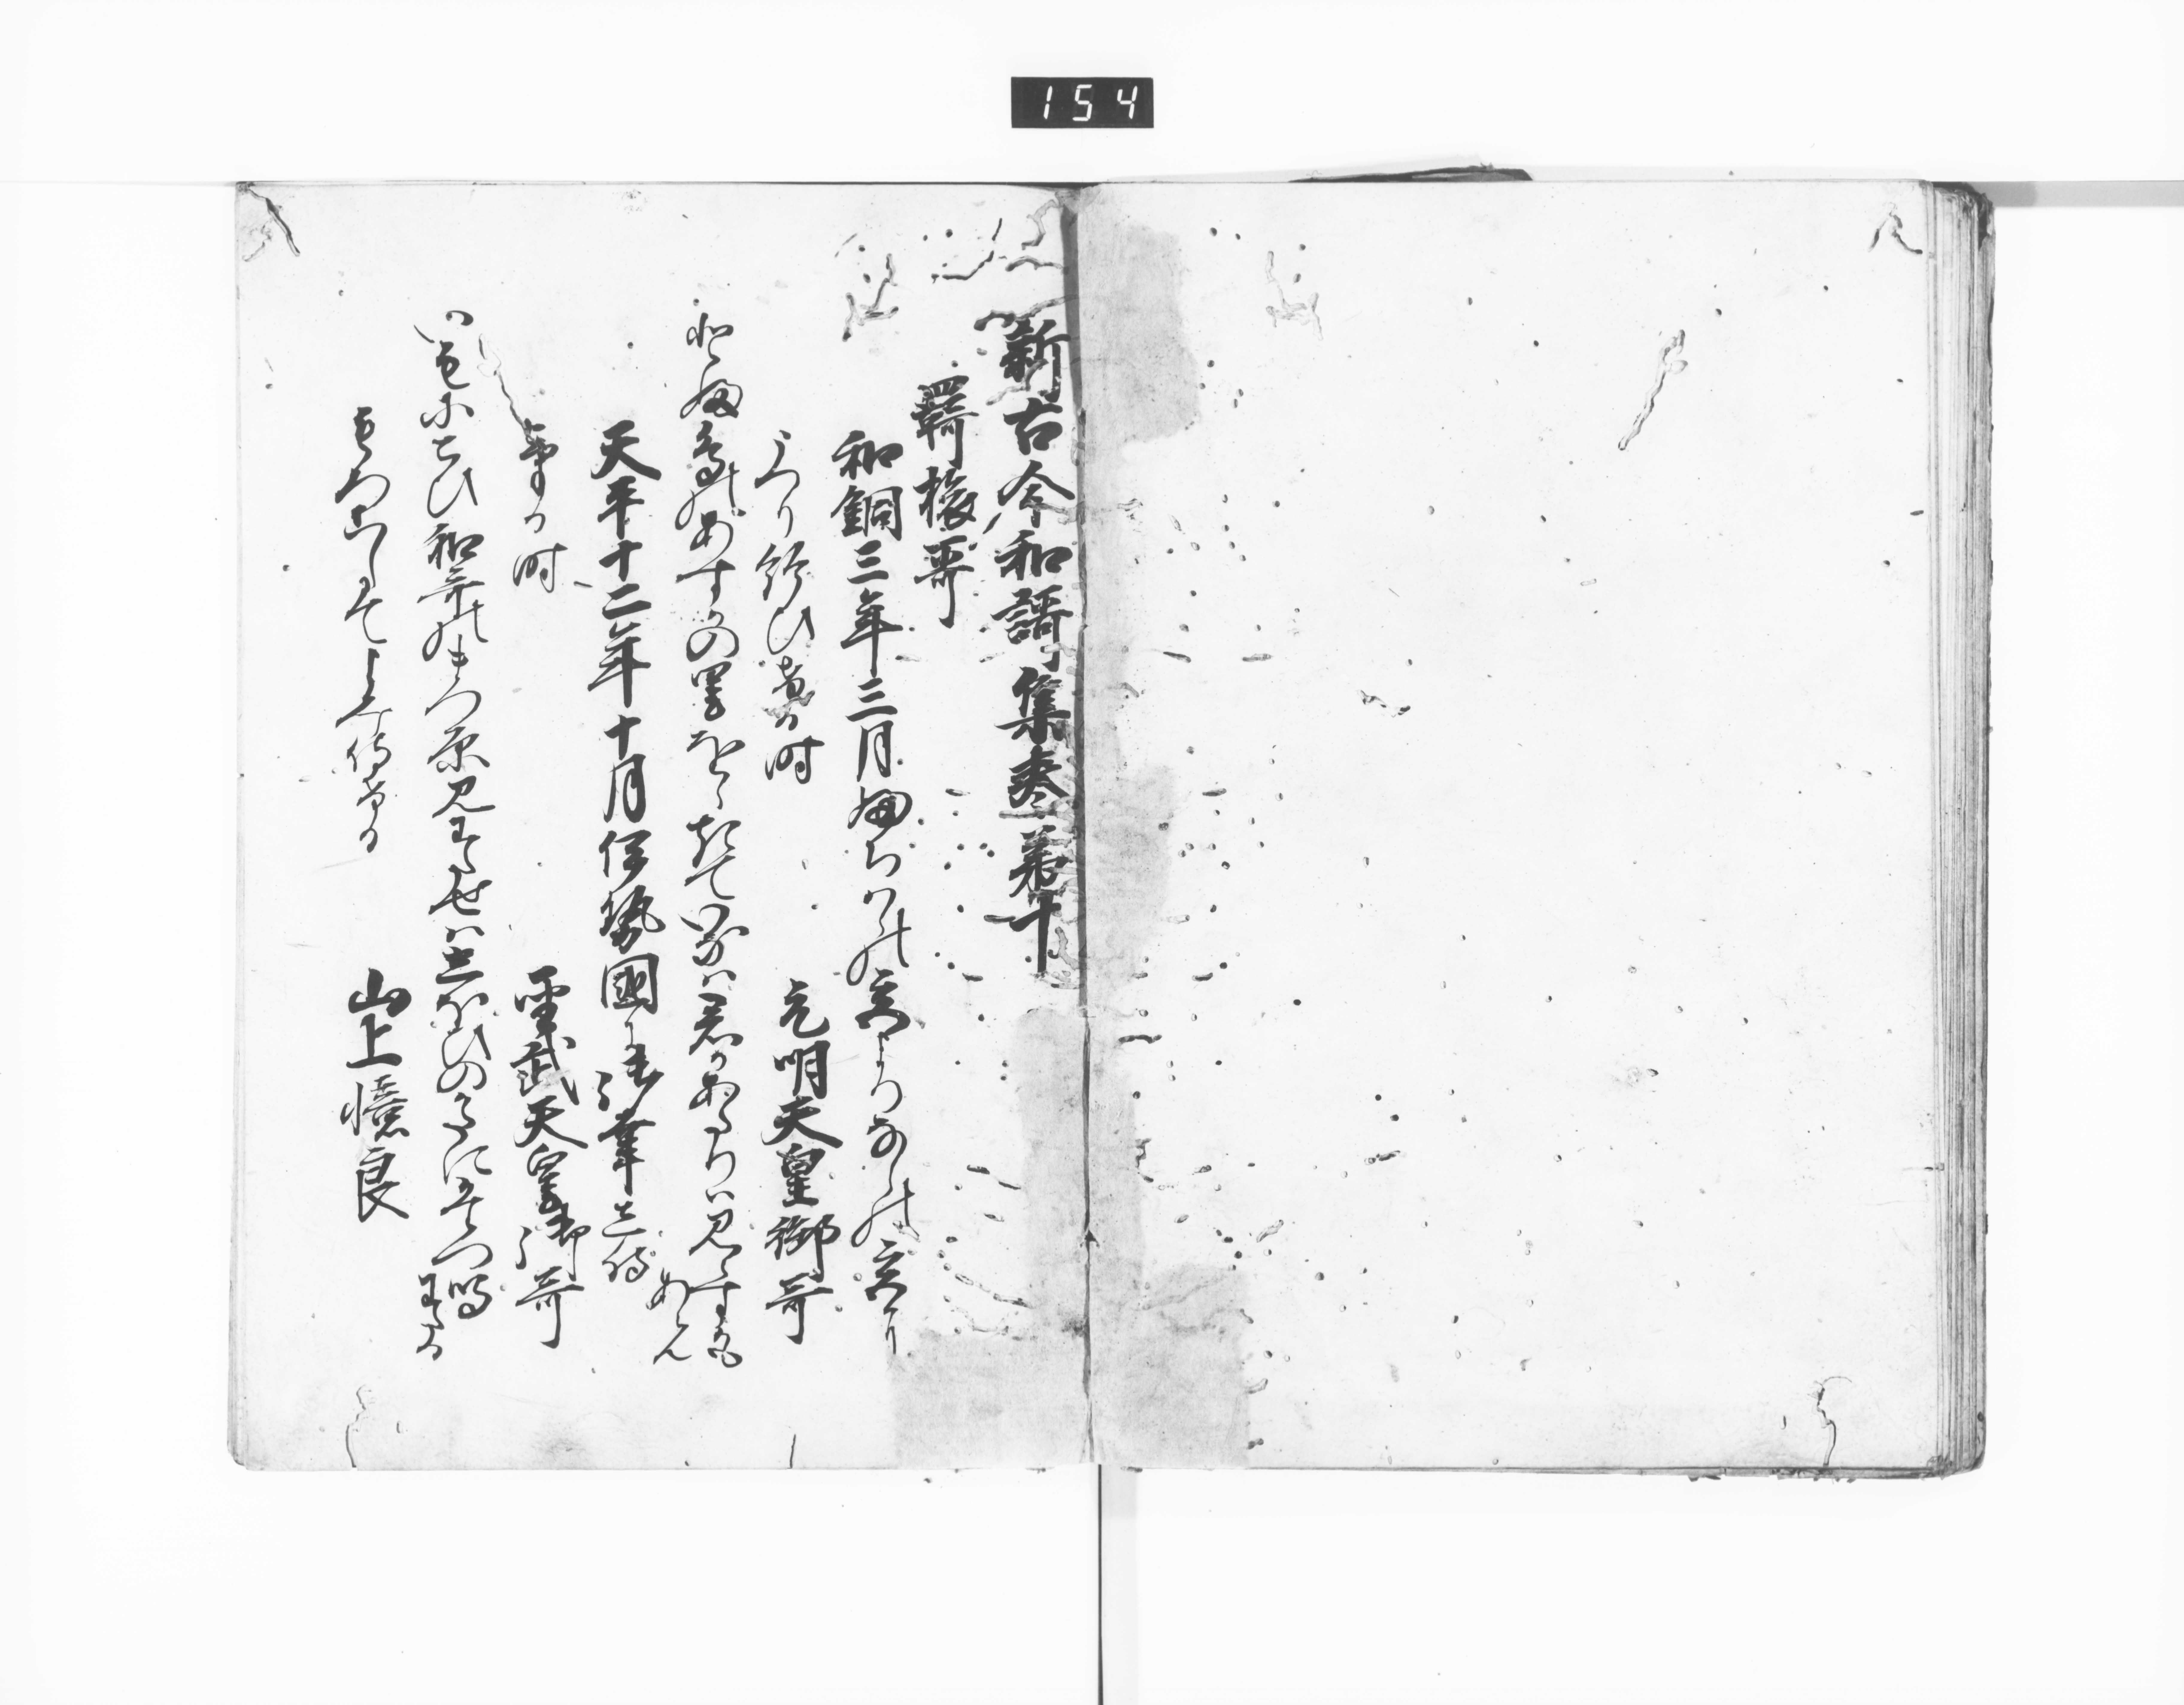 154
新古今和謌集巻第十
羇旅哥
和銅三年三月ふちはらの宮よりならの宮に
うつり給ひける時
元明天皇御哥
とふ鳥のあすかの里をゝきていなは君かあたりは見えすかも
あらん
天平十二年十月伊勢國に御幸し侍
ける時
聖武天皇御哥
いもにこひ和哥の松原見わたせはしほひのかたにたつ鳴
わたる
もろこしにてよみ侍ける
山上憶良